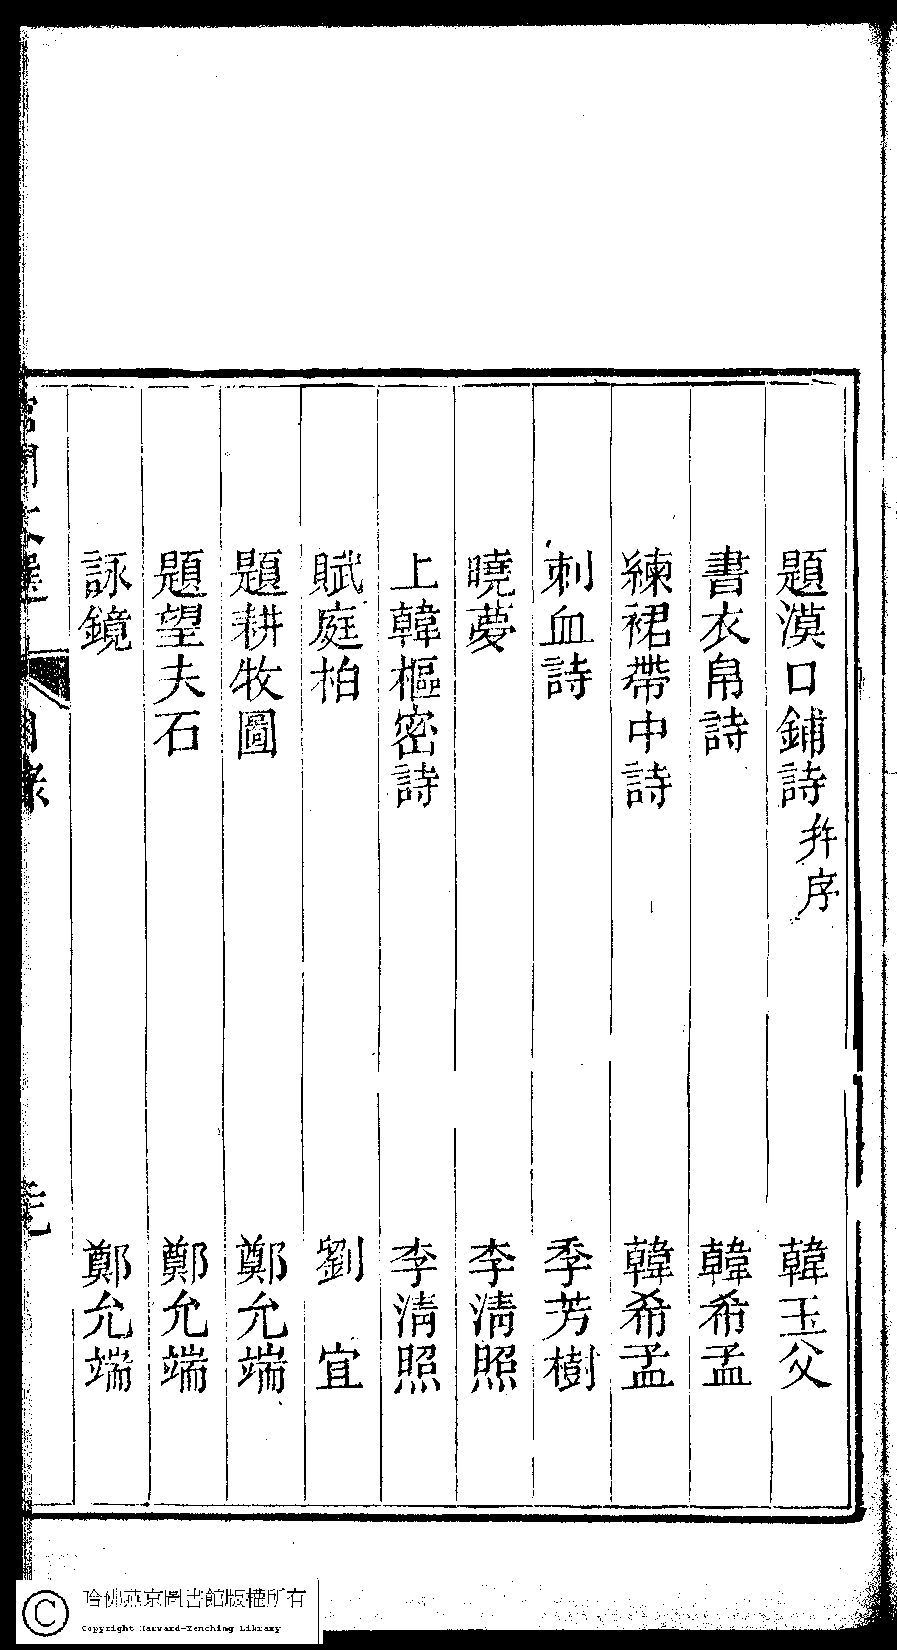 題漠口鋪詩 幷序 韓玉父
書衣帛詩 韓希孟
練裙帶中詩 韓希孟
刺血詩 季芳樹
曉夢 李淸照
上韓樞密詩 李淸照
賦庭柏 劉宜
題耕牧圖 鄭允端
題望夫石 鄭允端
詠鏡 鄭允端
哈佛燕京圖書館版權所有
Copyright Harvard-Yenching Library